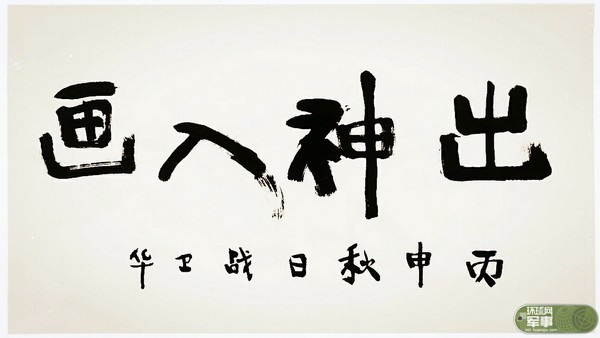 出神入画
丙申秋日战卫华
环球网
军事
mil.huanqiu.com